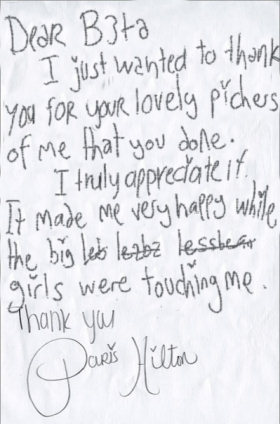 Dear B3ta
I just wanted to thank
you for your lovely pichers
of me that you done.
I truly appreciate it.
It made me very happy while
the big leb lezbz lessbear
girls were touching me.
Thank you
Paris Hilton